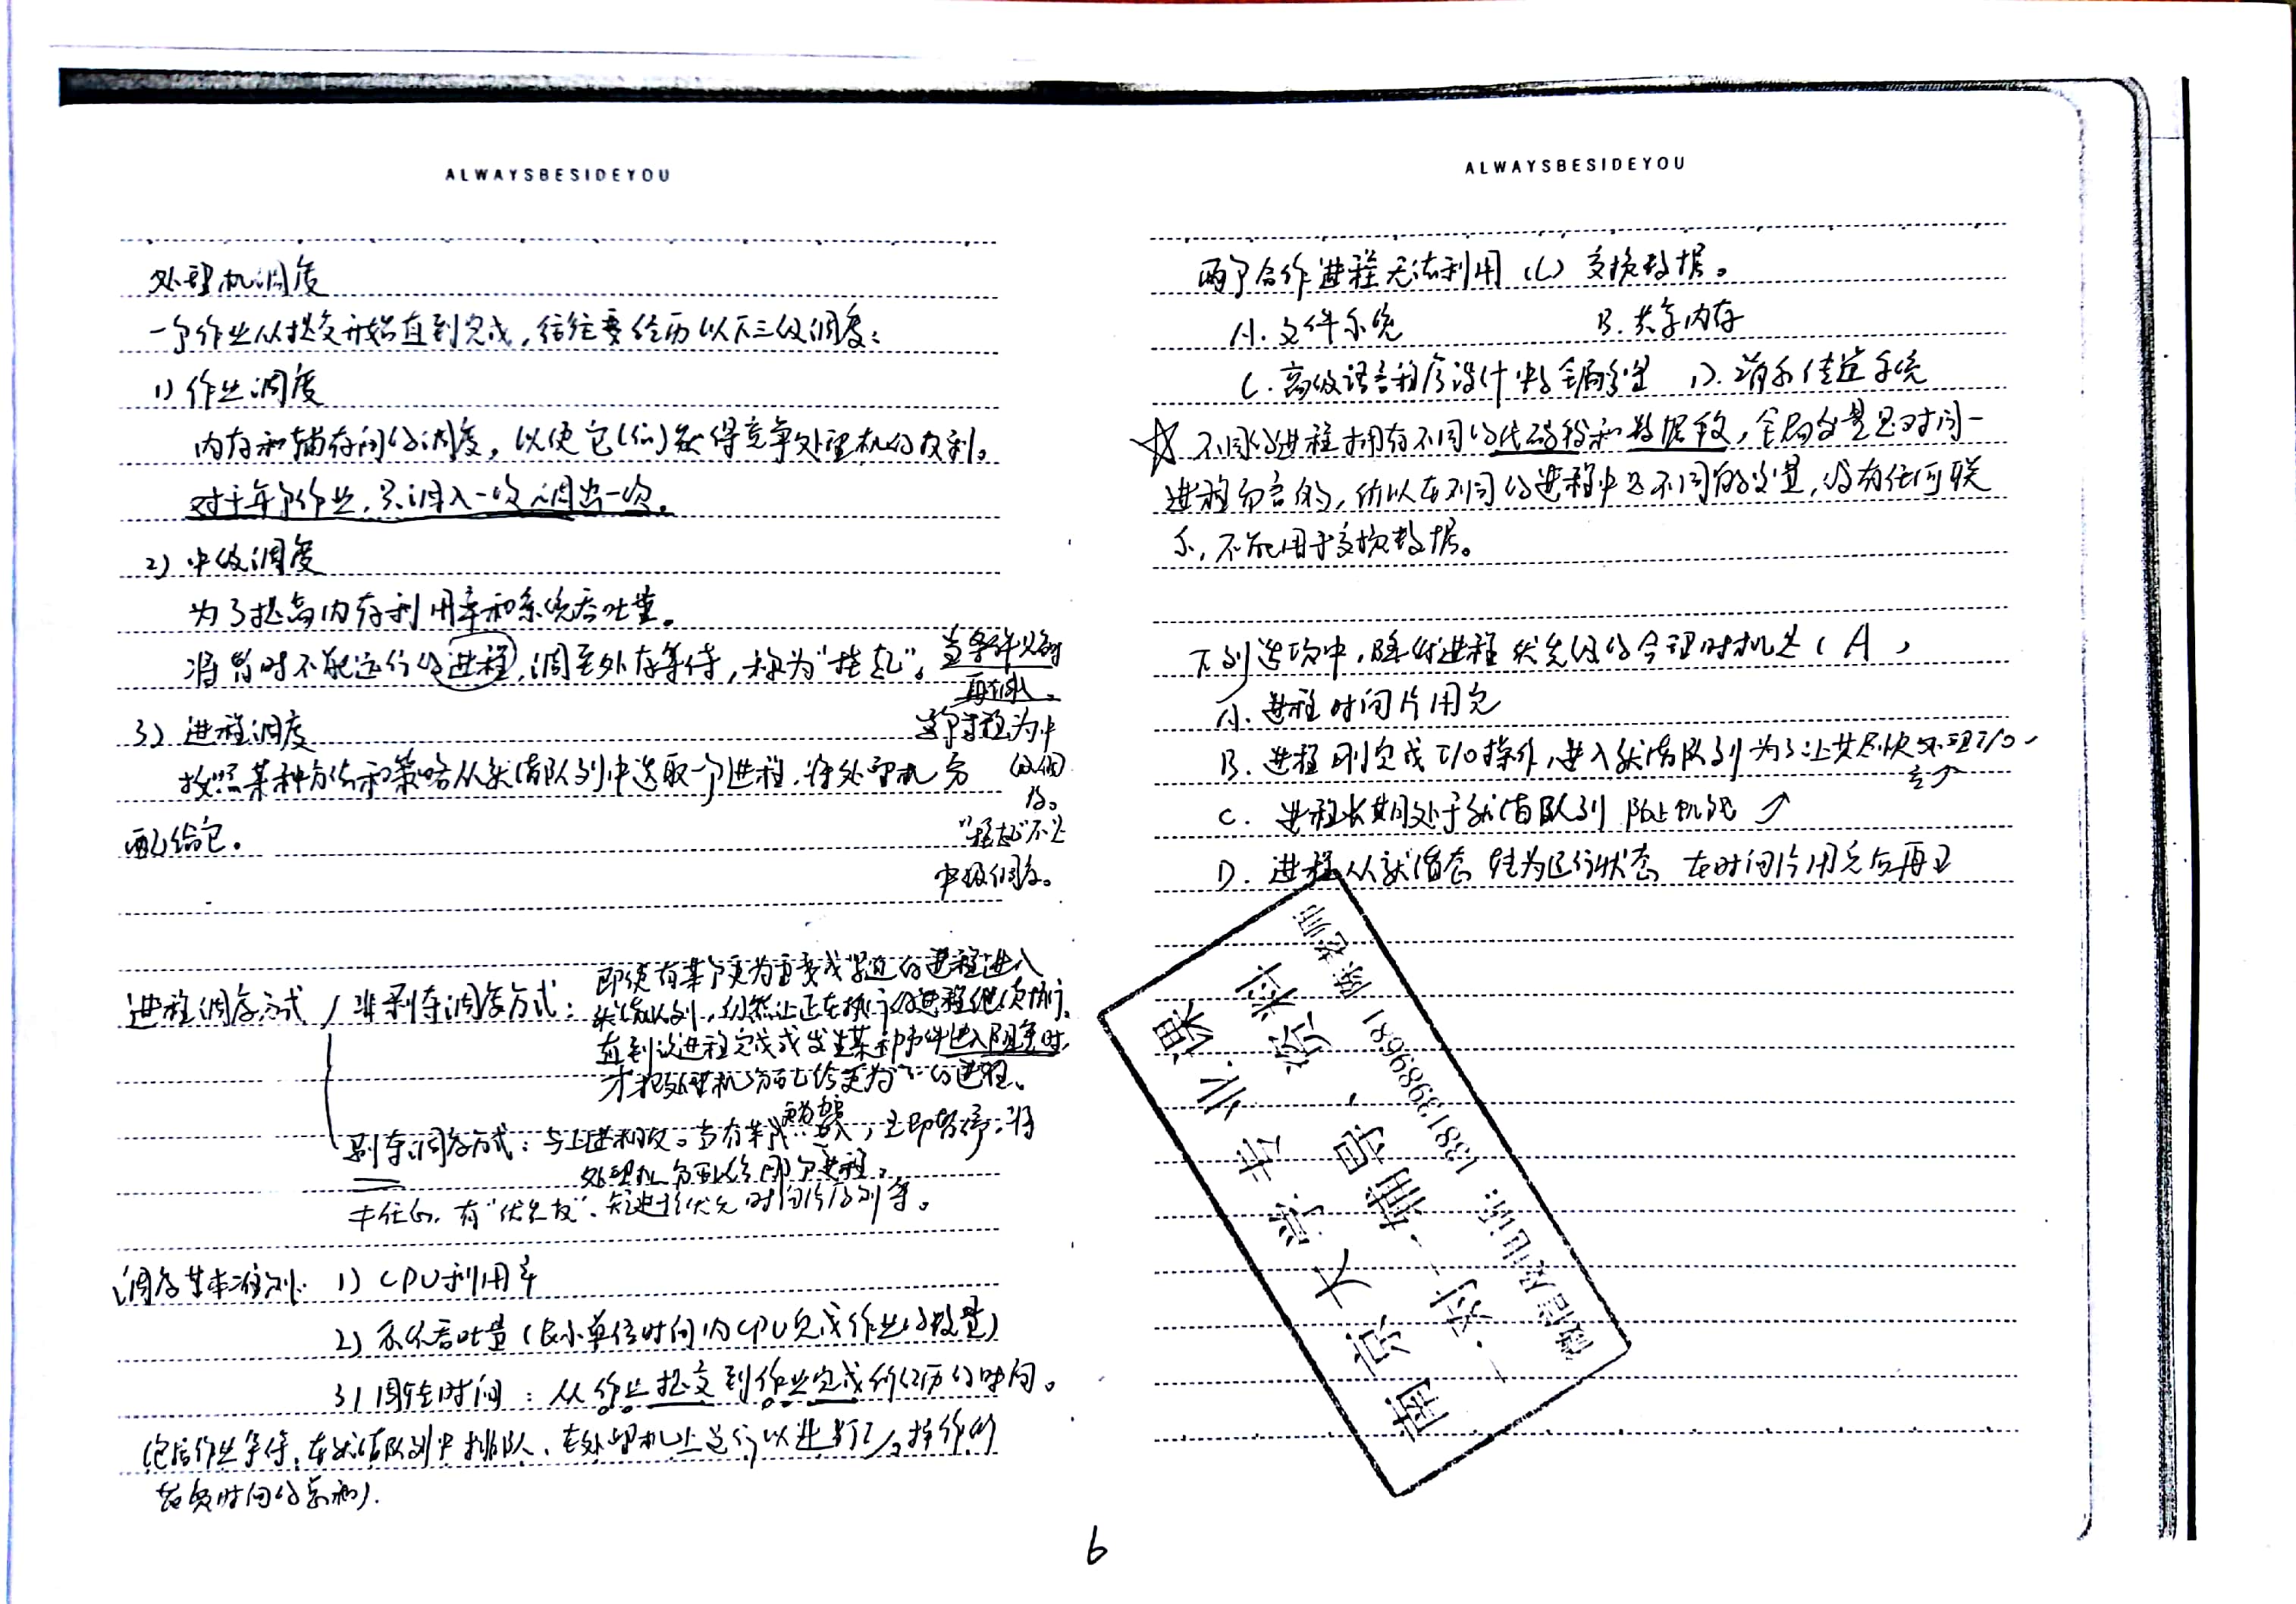 ALWAYSBESIDEYOU
处理机调度
一个作业从提交开始直到完成，往往要经历以下三级调度：
1) 作业调度
内存和辅存间的调度，以使它(们)获得竞争处理机的权利。
对于每个作业，只调入一次、调出一次。
2) 中级调度
为了提高内存利用率和系统吞吐量。
将暂时不能运行的进程，调至外存等待，称为“挂起”。当条件具备时
再调入。
这个过程为中
级调
度。
“挂起”不是
中级调度。
3) 进程调度
按照某种方法和策略从就绪队列中选取一个进程，将处理机分
配给它。
进程调度方式 非剥夺调度方式：即使有某个更为重要或紧迫的进程进入
就绪队列，仍然让正在执行的进程继续执行，
直到该进程完成或发生某种事件进入阻塞时，
才把处理机分配给更为“”的进程。
剥夺调度方式：与上述相反。当有某或更为紧 进入，立即暂停，将
处理机分配给那个进程。
有“优先权”、短进程优先 时间片原则等。
调度基本准则：1) CPU利用率
2) 系统吞吐量（表示单位时间内CPU完成作业的数量）
3) 周转时间：从作业提交到作业完成所经历的时间。
(包括作业等待、在就绪队列中排队、在处理机上运行以及进行I/O操作所
花费时间的总和).
ALWAYSBESIDEYOU
两个合作进程无法利用（C）交换数据。
A. 文件系统 B. 共享内存
C. 高级语言程序设计中的全局变量 D. 消息传递系统
☆ 不同的进程拥有不同的代码段和数据段，全局变量是对同一
进程而言的，所以在不同的进程中是不同的变量，没有任何联
系，不能用于交换数据。
下列选项中，降低进程优先级的合理时机是（A）
A. 进程时间片用完
B. 进程刚完成I/O操作，进入就绪队列 为了让其尽快处理I/O
C. 进程长期处于就绪队列 防止饥饿 ↗
D. 进程从就绪态转为运行状态 在时间片用完后再
南京大学专业课
一对一辅导、资料
微信及电话：18813989681 陈老师
6